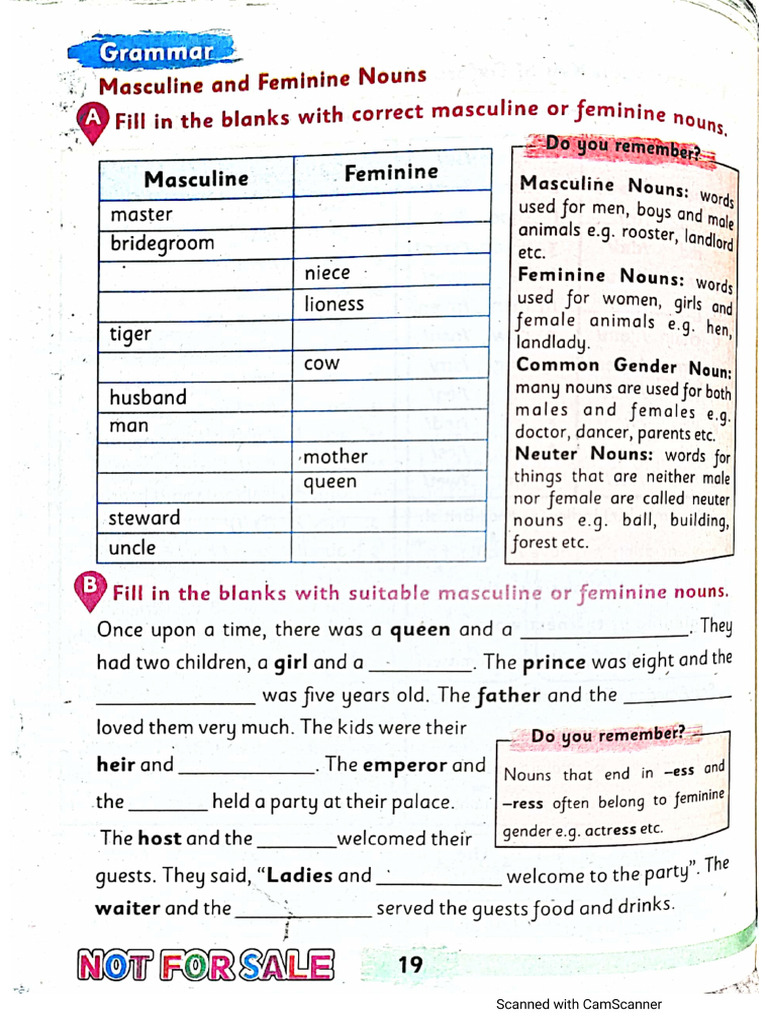 Grammar
Masculine and Feminine Nouns
A Fill in the blanks with correct masculine or feminine nouns.
Masculine Feminine
master
bridegroom
niece
lioness
tiger
cow
husband
man
mother
queen
steward
uncle
Do you remember?
Masculine Nouns: words
used for men, boys and male
animals e.g. rooster, landlord
etc.
Feminine Nouns: words
used for women, girls and
female animals e.g. hen,
landlady.
Common Gender Noun:
many nouns are used for both
males and females e.g.
doctor, dancer, parents etc.
Neuter Nouns: words for
things that are neither male
nor female are called neuter
nouns e.g. ball, building,
forest etc.
B Fill in the blanks with suitable masculine or feminine nouns.
Once upon a time, there was a queen and a ________________. They
had two children, a girl and a __________. The prince was eight and the
_______________ was five years old. The father and the __________
loved them very much. The kids were their
heir and _____________. The emperor and
the _______ held a party at their palace.
The host and the _______welcomed their
guests. They said, “Ladies and ____________ welcome to the party”. The
waiter and the _____________ served the guests food and drinks.
Do you remember?
Nouns that end in –ess and
–ress often belong to feminine
gender e.g. actress etc.
NOT FOR SALE
19
Scanned with CamScanner